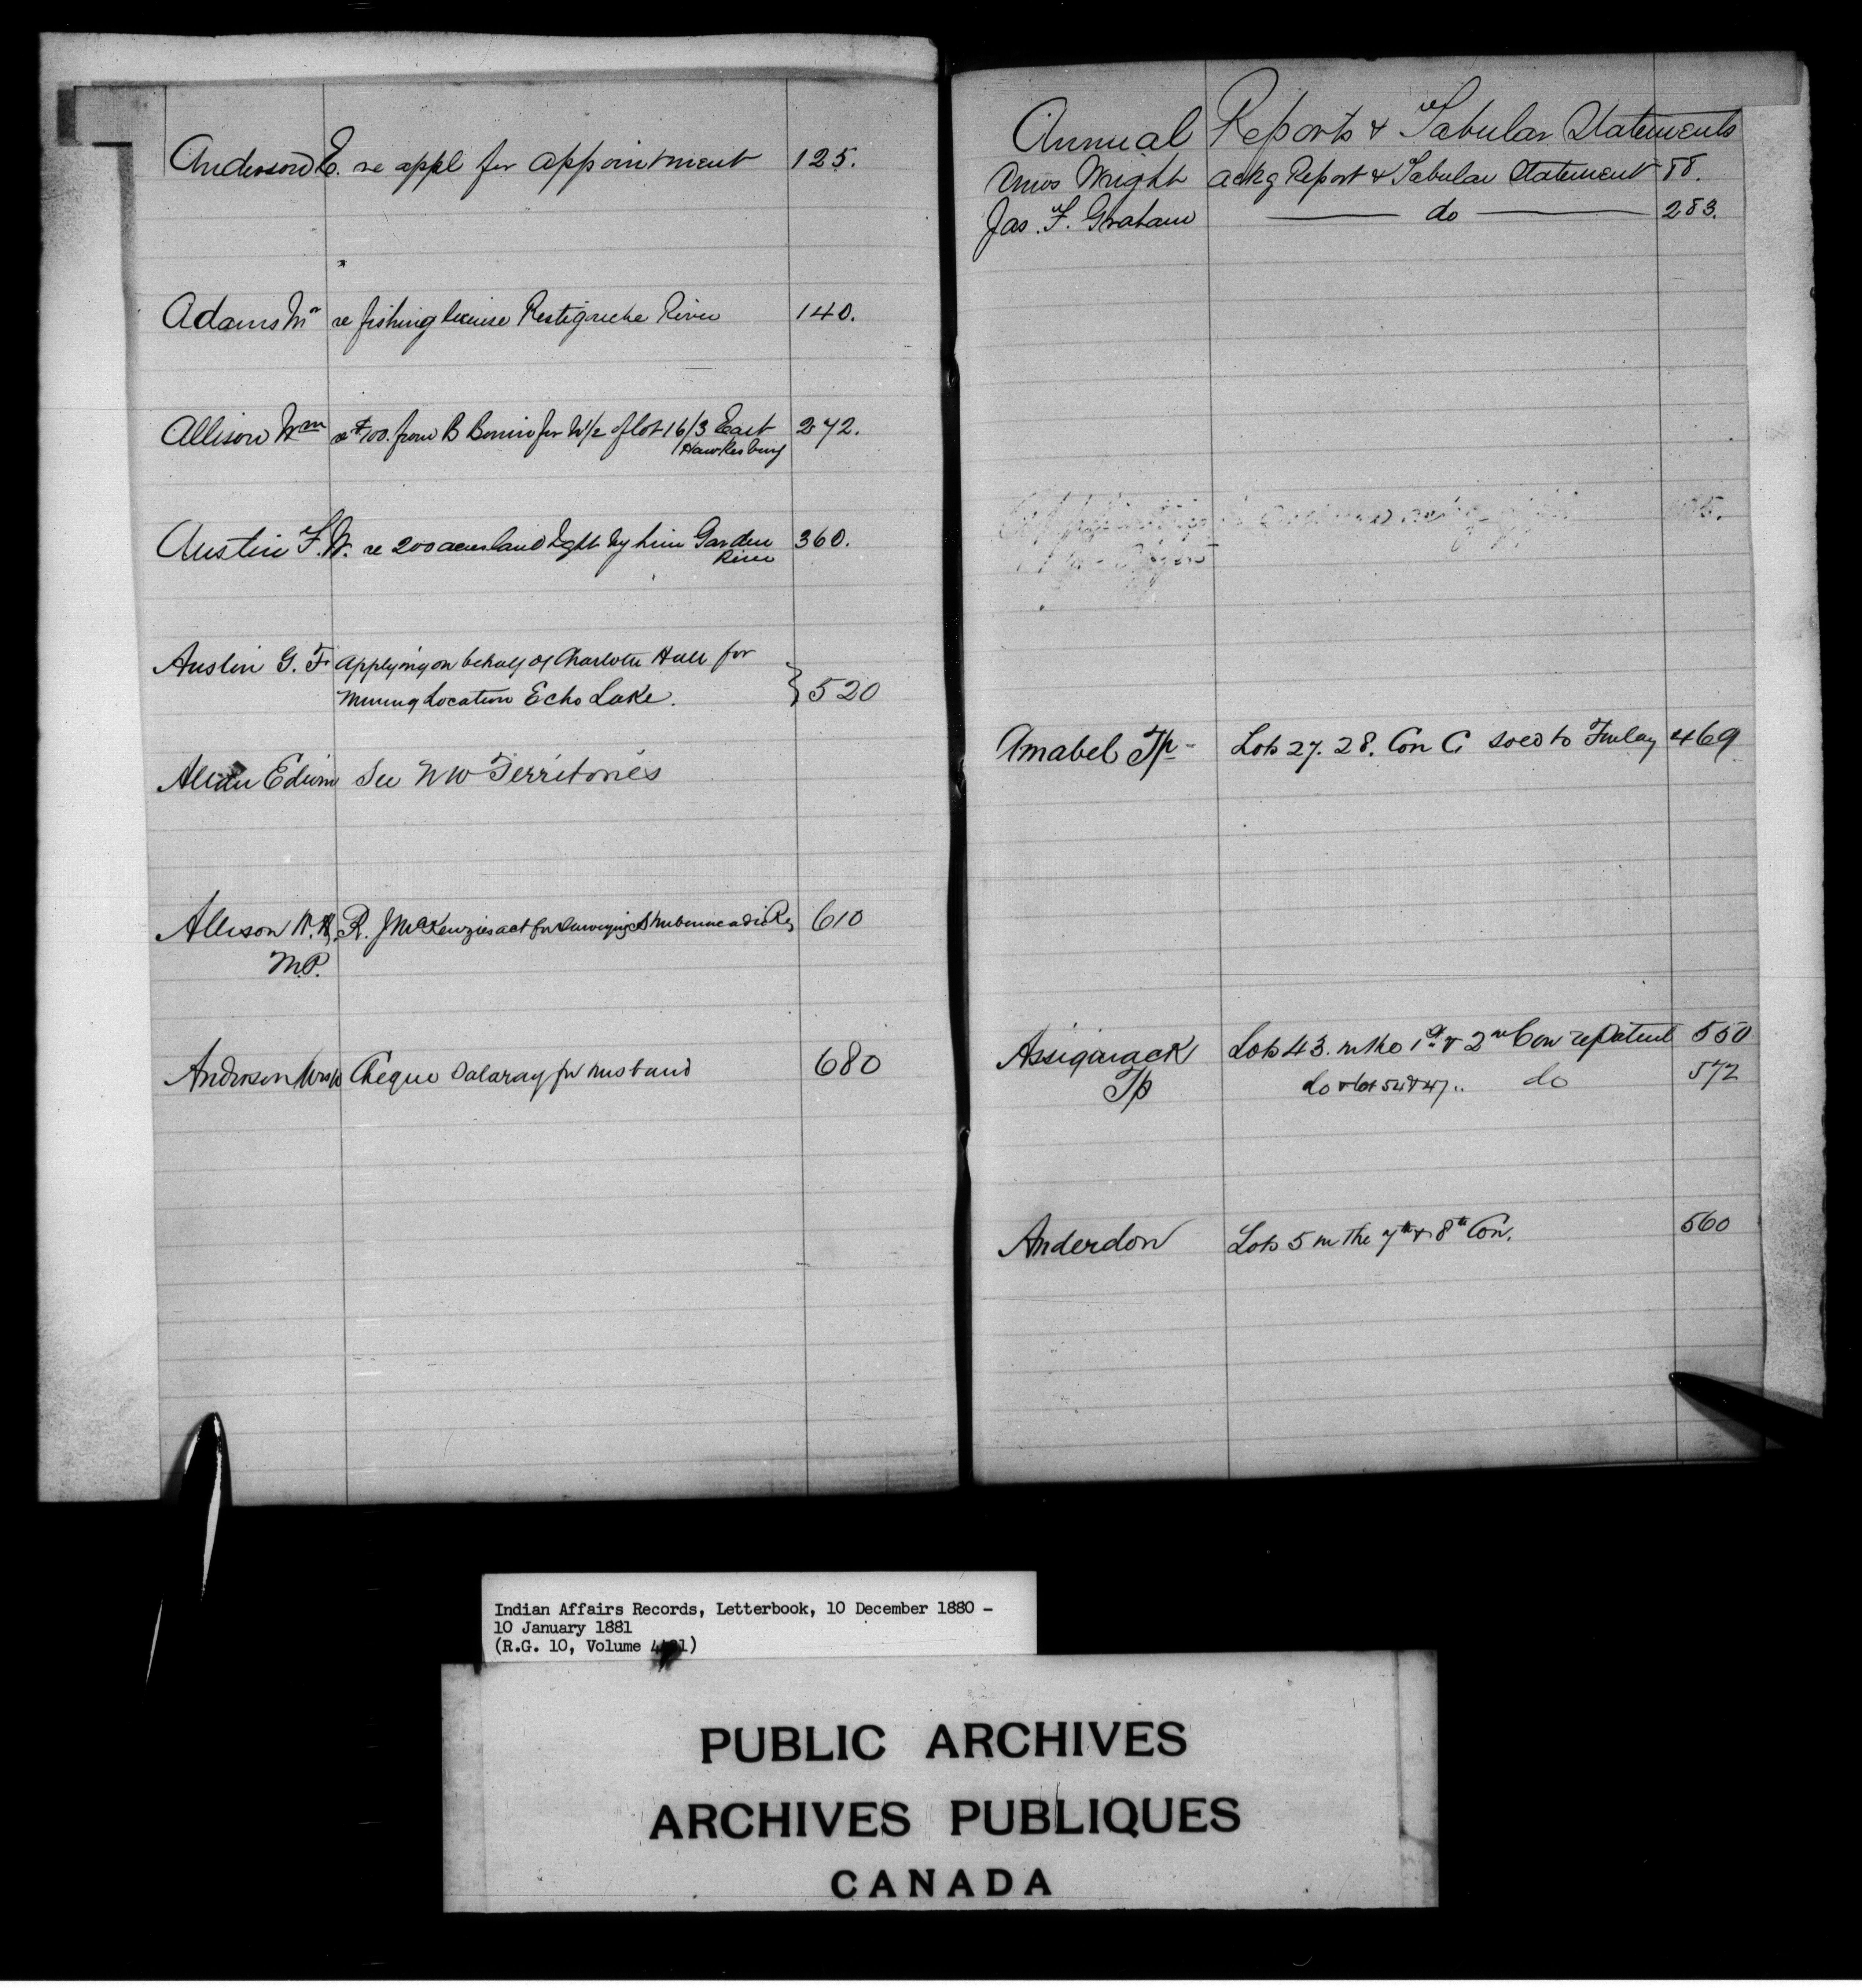 Anderson E. re appl for appointment 125.
Adams Mr re fishing license Restigouche River 140.
Allison Wm re $100. from B Bonin for W/2 of lot 16/3 East 272.
Hawkesbury
Austin F. W. re 200 acres land bght by him Garden 360.
River
Austin G. F. Applying on behalf of Charlotte Hall for
Mining Location Echo Lake. } 520
Allen Edwin See N W Territories
Allison W. H. R. J McKenzies act for Surveying Shubenacadie Res 610
M.P.
Anderson Mrs Cheque Salaray for husband 680
Annual Reports & Tabular Statements
Amos Wright ackg Report & Tabular Statement 88.
Jas. F. Graham do 283.
Amabel Tp - Lots 27. 28. Con C. sold to Finlay 469
Assiginack Lots 43. in the 1st & 2nd Con re Patent 550
Tp do & lot 54 & 47.. do 572
Anderdon Lots 5 in the 7th & 8th Con. 560
Indian Affairs Records, Letterbook, 10 December 1880 –
10 January 1881
(R.G. 10, Volume
PUBLIC ARCHIVES
ARCHIVES PUBLIQUES
CANADA